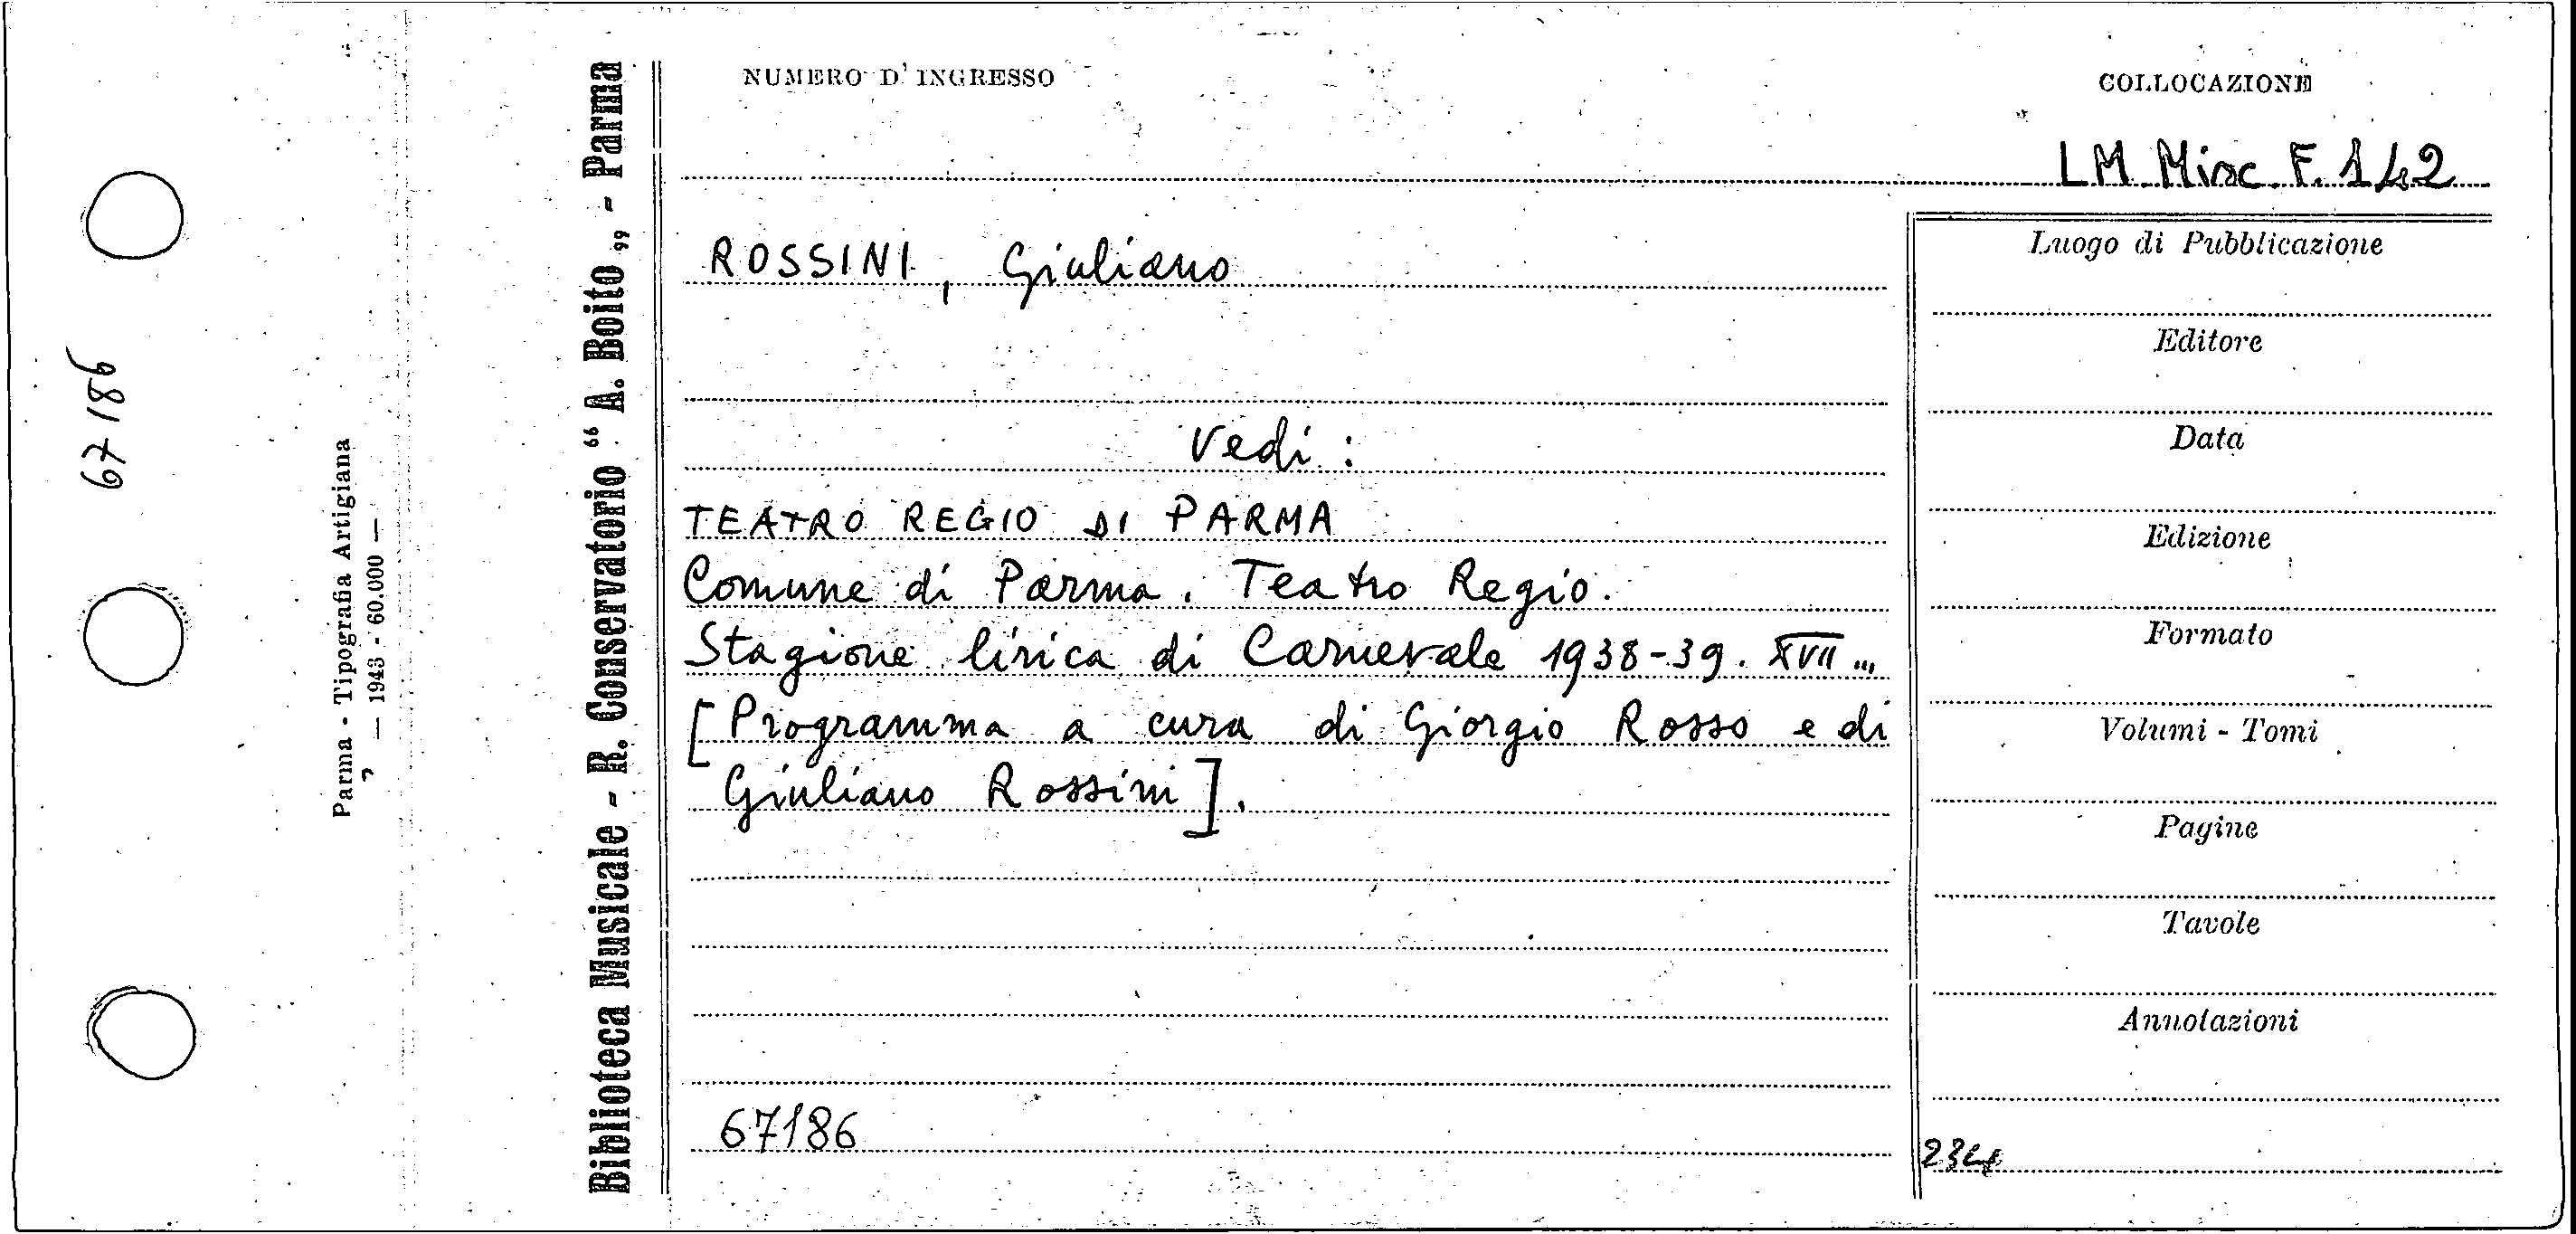 67186
Parma - Tipografia Artigiana
— 1943 - 60.000 —
Biblioteca Musicale - R. Conservatorio “A. Boito„ - Parma
NUMERO D'INGRESSO
COLLOCAZIONE
LM Misc. F. 142
ROSSINI, Giuliano
Vedi:
TEATRO REGIO DI PARMA
Comune di Parma. Teatro Regio.
Stagione lirica di Carnevale 1938-39. XVII...
[Programma a cura di Giorgio Rosso e di
Giuliano Rossini].
67186
Luogo di Pubblicazione
Editore
Data
Edizione
Formato
Volumi - Tomi
Pagine
Tavole
Annotazioni
234